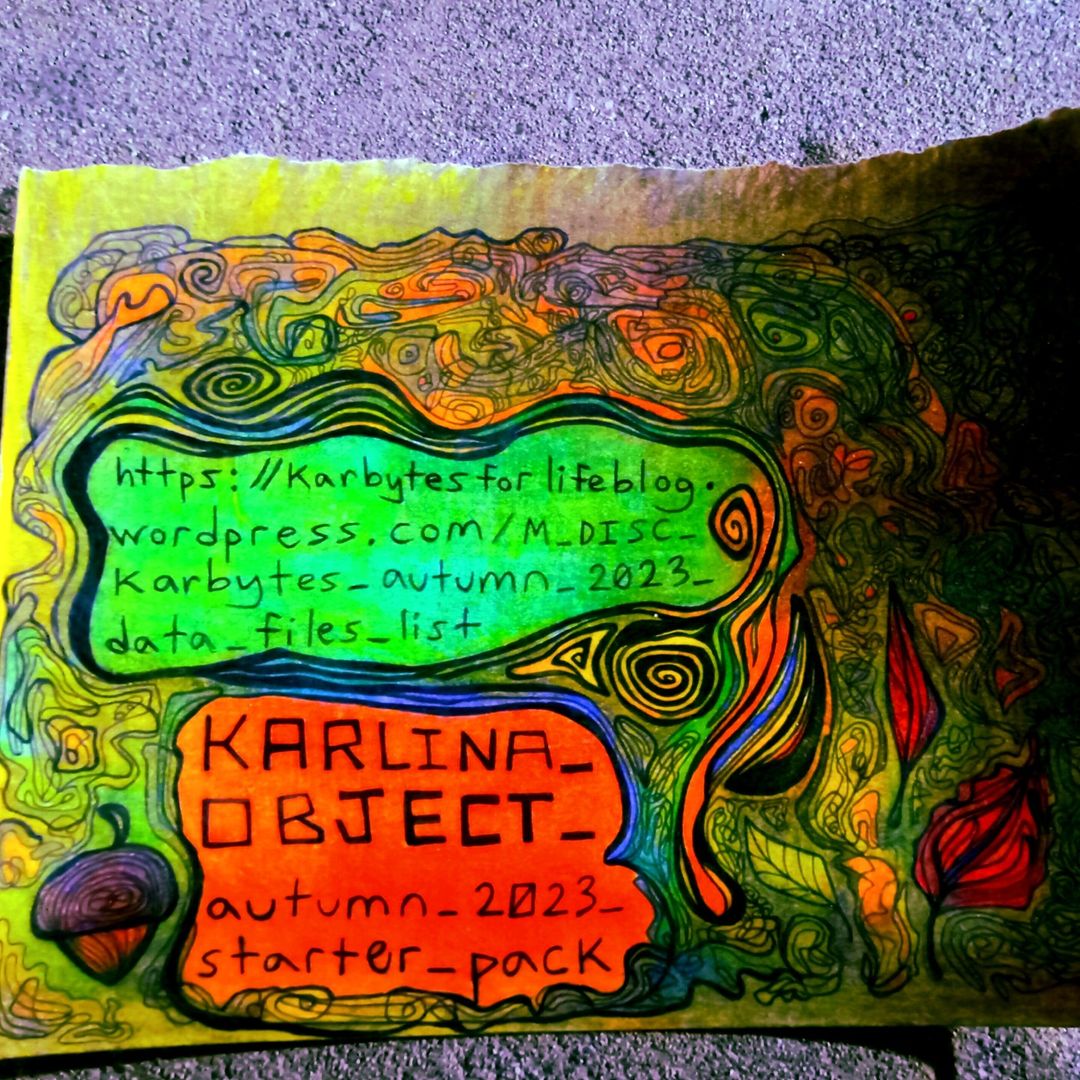 https://karbytesforlifeblog.
wordpress.com/M_DISC_
karbytes_autumn_2023_
data_files_list
KARLINA_
OBJECT_
autumn_2023_
starter_pack